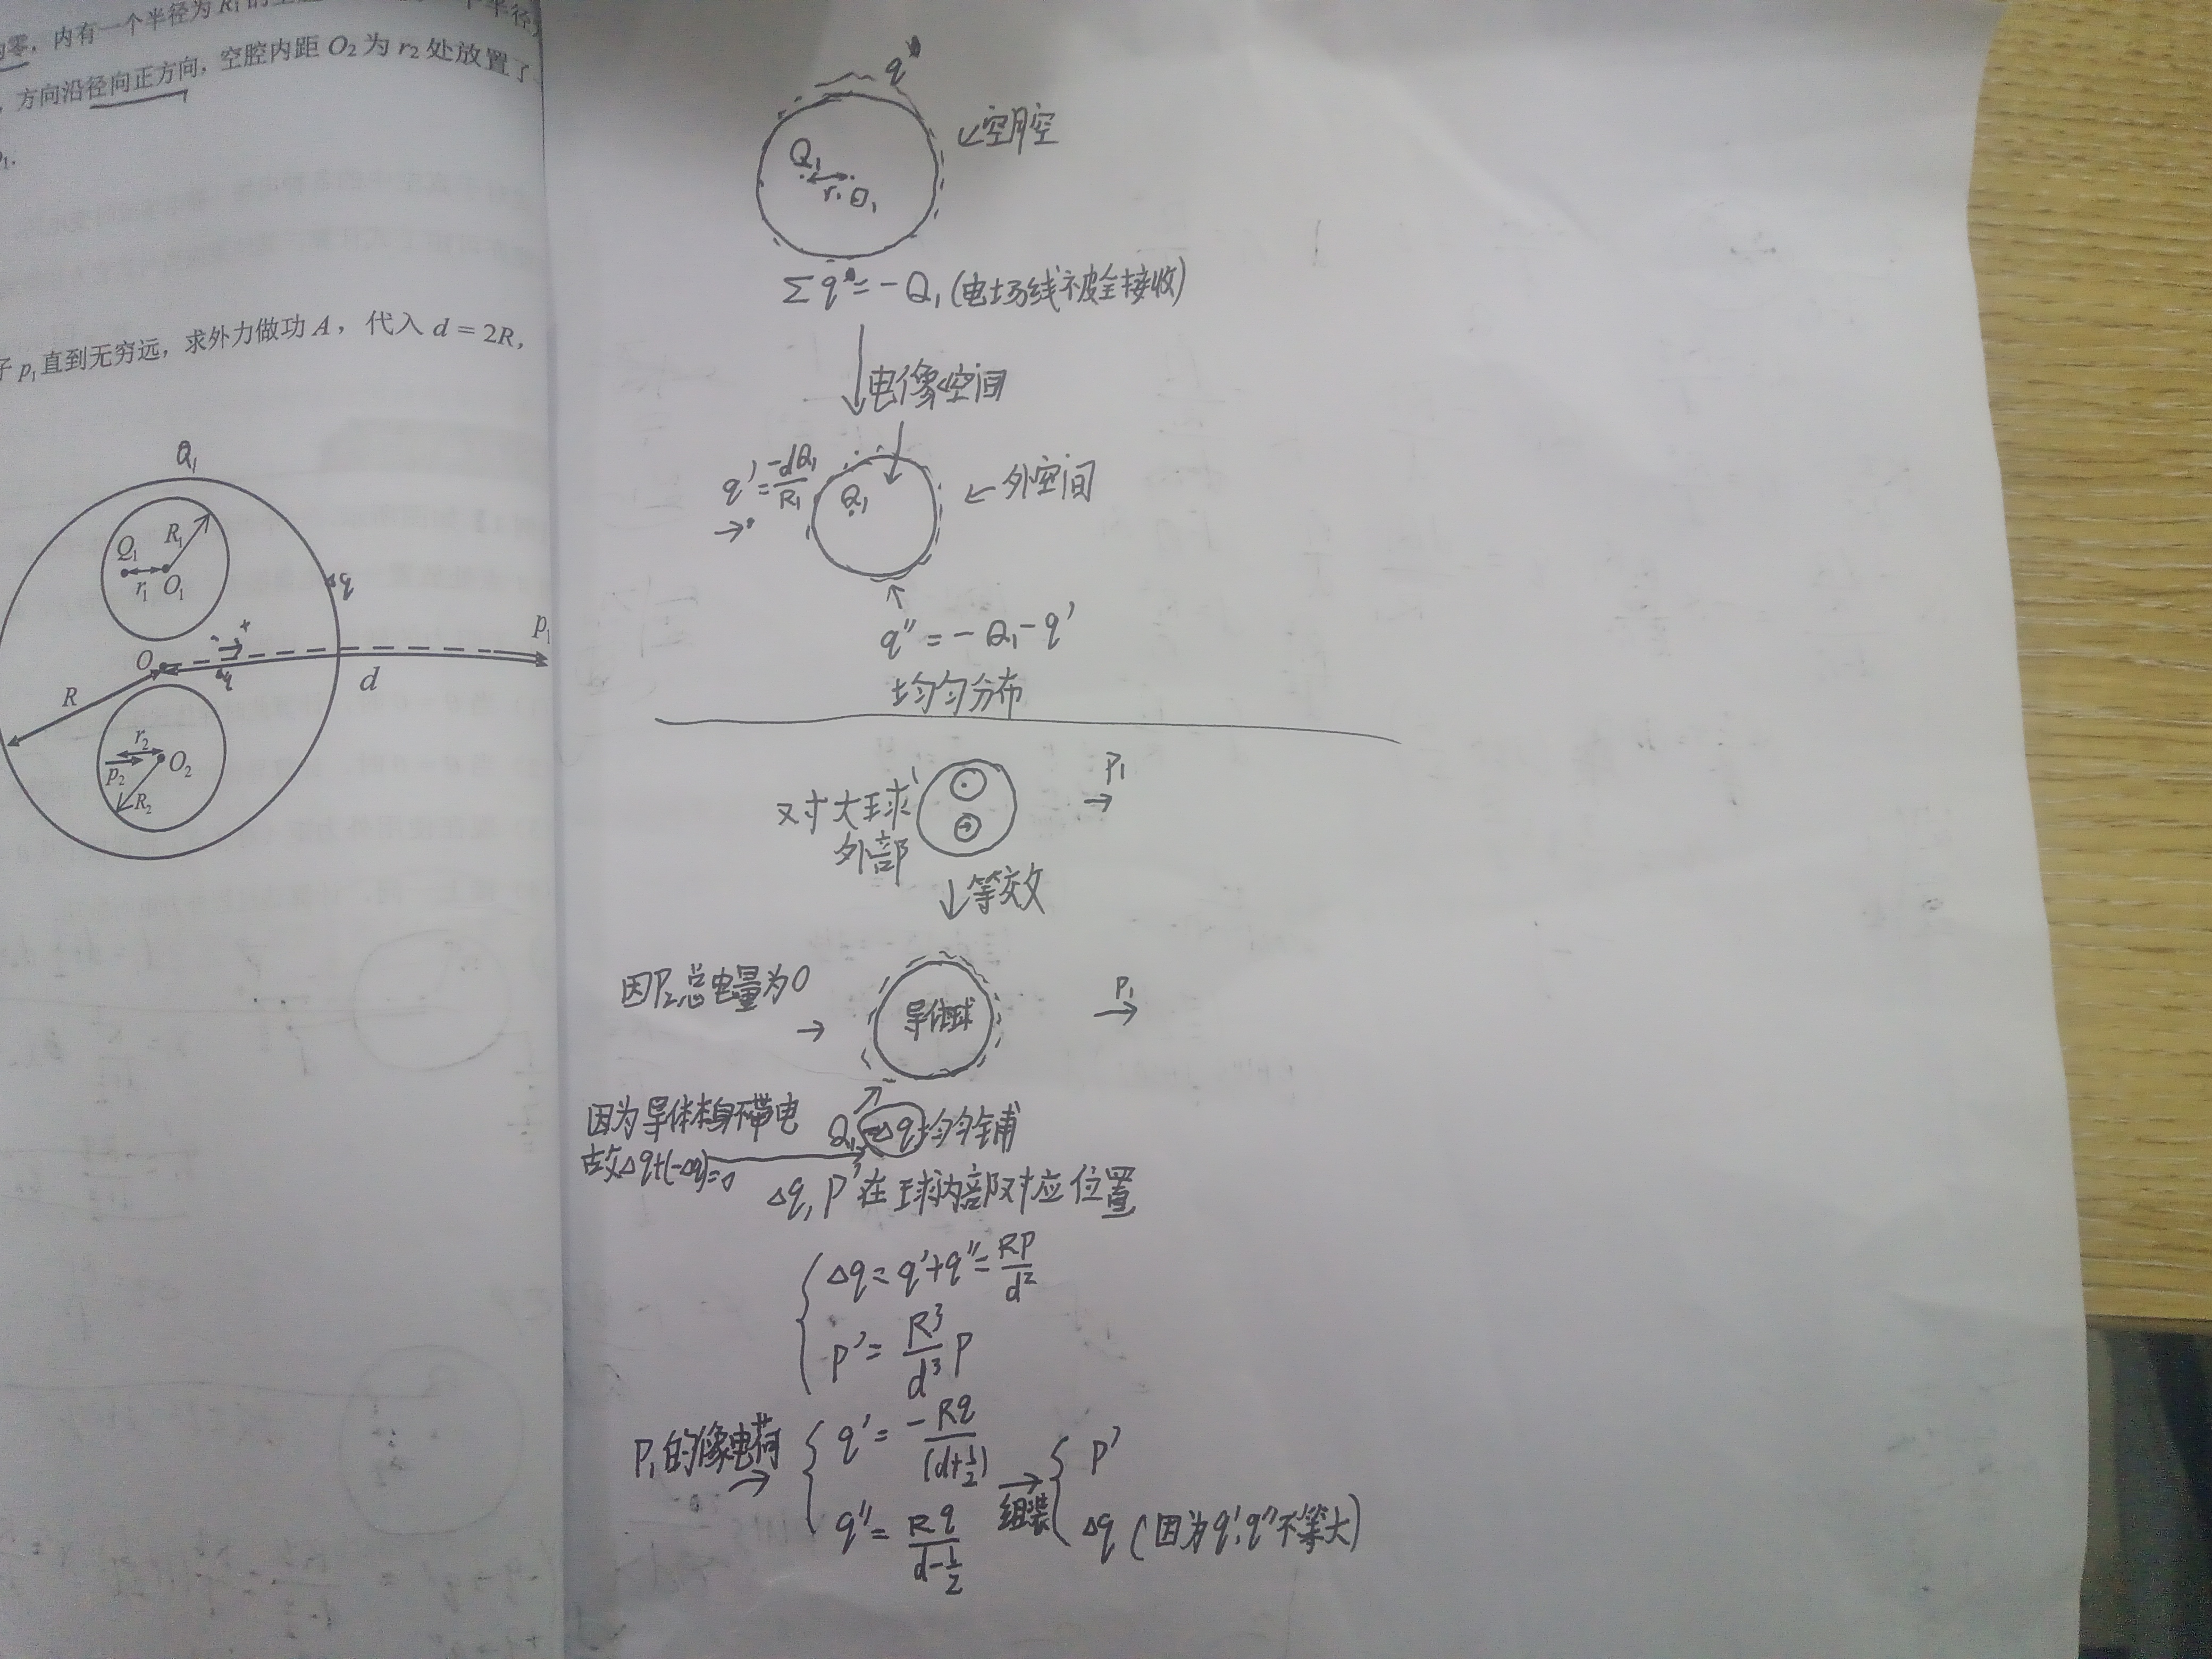 零，内有一个半径为 R₁ 的空腔
，方向沿径向正方向，空腔内距 O₂ 为 r₂ 处放置了
p₁.
子 p₁ 直到无穷远，求外力做功 A，代入 d = 2R，
Q₁
Q₁
R₁
r₁
O₁
Δq
p₁
O
Δq
d
R
r₂
O₂
p₂
R₂
q*
空腔
Q₁
r₁ O₁
Σq* = -Q₁ (电场线被全接收)
电像空间
q' = -dQ₁/R₁
Q₁
外空间
q'' = -Q₁-q'
均匀分布
对大球
外部
P₁
等效
因P₂总电量为0
导体球
P₁
因为导体本身不带电
故Δq+(-Δq)=0
Q₁-Δq均匀铺
Δq, P'在球内部对应位置
Δq = q'+q'' = RP/d²
P' = R³/d³ P
P₁的像电荷
q' = -Rq/(d+l/2)
q'' = Rq/(d-l/2)
组装
P'
Δq (因为q', q''不等大)